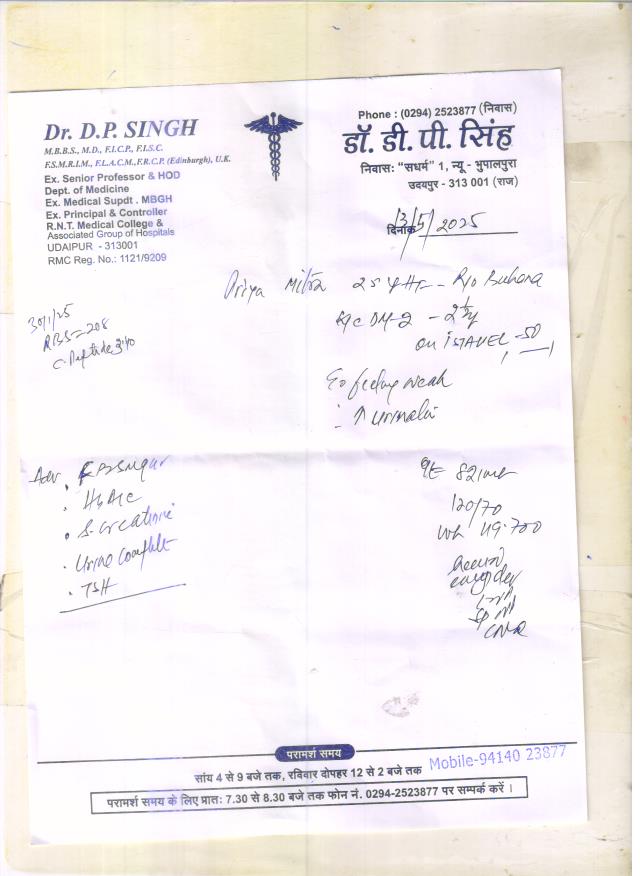 Dr. D.P. SINGH
M.B.B.S., M.D., F.I.C.P., F.I.S.C.
F.S.M.R.I.M., F.L.A.C.M., F.R.C.P. (Edinburgh), U.K.
Ex. Senior Professor & HOD
Dept. of Medicine
Ex. Medical Supdt . MBGH
Ex. Principal & Controller
R.N.T. Medical College &
Associated Group of Hospitals
UDAIPUR - 313001
RMC Reg. No.: 1121/9209
Phone : (0294) 2523877 (निवास)
डॉ. डी. पी. सिंह
निवास: "सधर्म" 1, न्यू - भुपालपुरा
उदयपुर - 313 001 (राज)
दिनांक 13/5/2025
Priya Mitra 25 R/o
DM-2
on ISTAVEL -50
feeling weak
30/1/25
RBS = 208
Adv
HbA1c
S. creatinine
Urine complete
TSH
120/70
49.700
परामर्श समय
सांय 4 से 9 बजे तक, रविवार दोपहर 12 से 2 बजे तक
Mobile-94140 23877
परामर्श समय के लिए प्रातः 7.30 से 8.30 बजे तक फोन नं. 0294-2523877 पर सम्पर्क करें ।